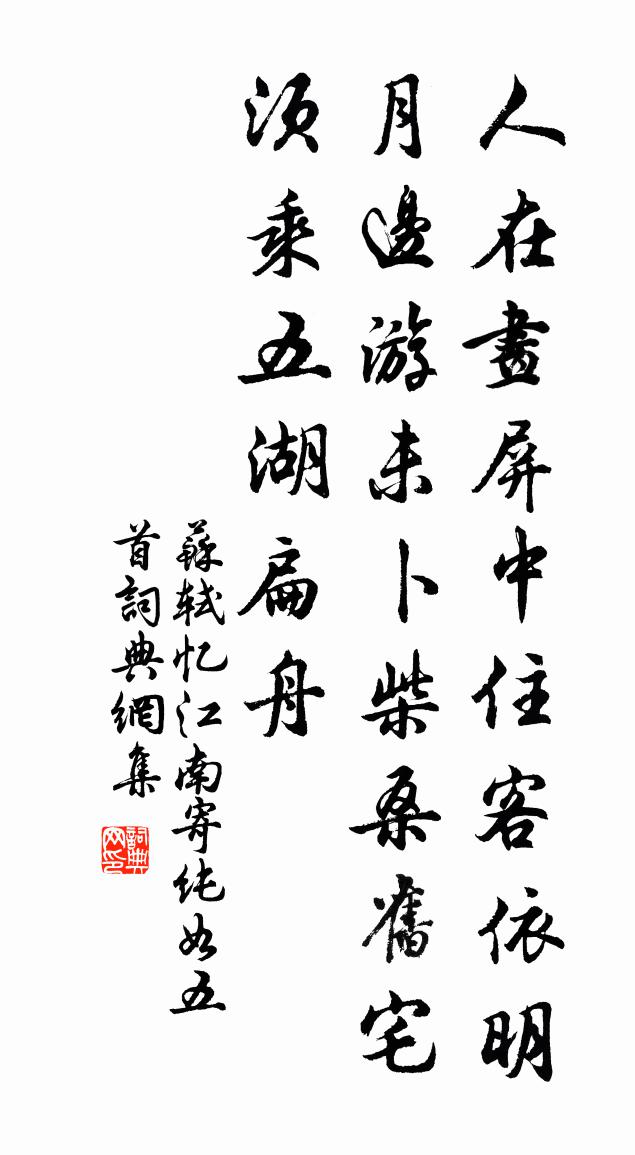 人在畫屏中住客依明
月邊游未卜柴桑舊宅
須乘五湖扁舟
蘇軾忆江南寄纯如五
首詞典網集
詞典
网印